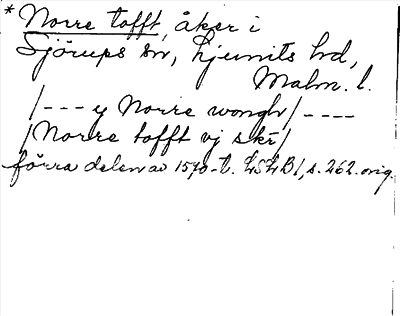 * Norre tofft, åker i
Sjörups sn, Ljunits hd,
Malm. l.
/--- y Norre wongh/----
/Norre tofft vj skr/
förra delen av 1570-t. LSLB1, s. 262. orig.